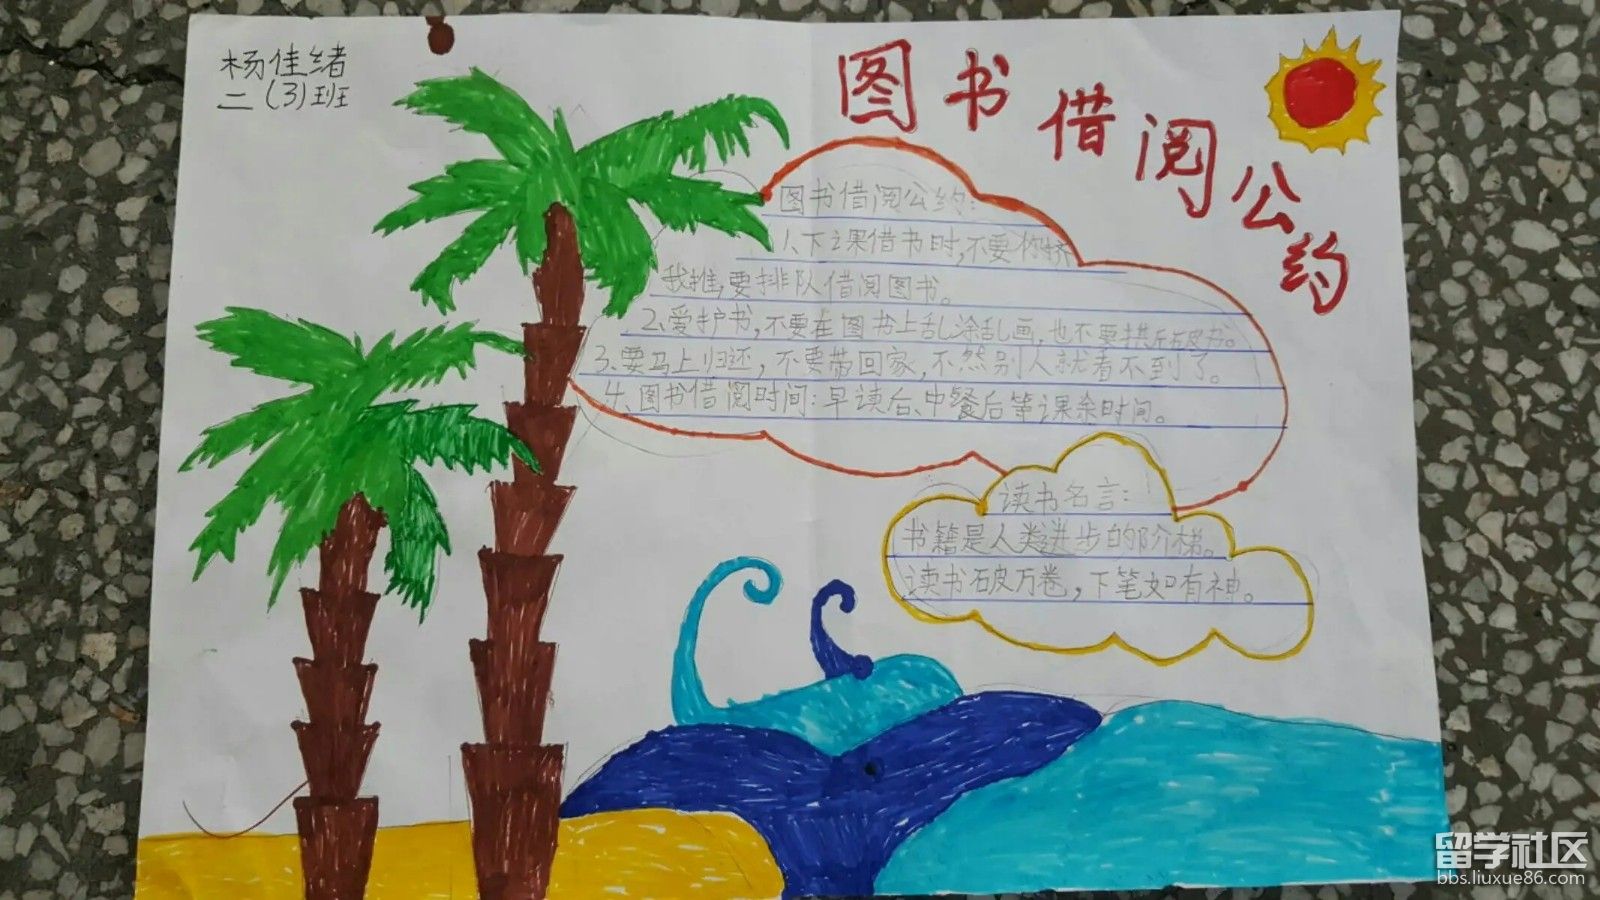 杨佳绪
二(3)班
图书借阅公约
图书借阅公约:
1、下课借书时,不要你挤
我推,要排队借阅图书。
2、爱护书,不要在图书上乱涂乱画,也不要损坏书。
3、要马上归还,不要带回家,不然别人就看不到了。
4、图书借阅时间:早读后、中餐后等课余时间。
读书名言:
书籍是人类进步的阶梯。
读书破万卷,下笔如有神。
留学社区
bbs.liuxue86.com